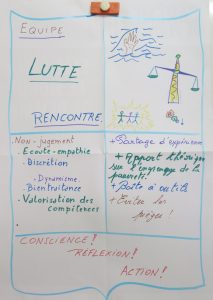 EQUIPE
LUTTE
RENCONTRE
Non-jugement
- Ecoute-empathie
- Discrétion
- Dynamisme
- Bientraitance
- Valorisation des
compétences
+ Partage d'expérience
+ Apport théorique
sur l'engrenage de la
pauvreté
+ Boîte à outils
+ Eviter les
pièges!
CONSCIENCE!
RÉFLEXION!
ACTION!